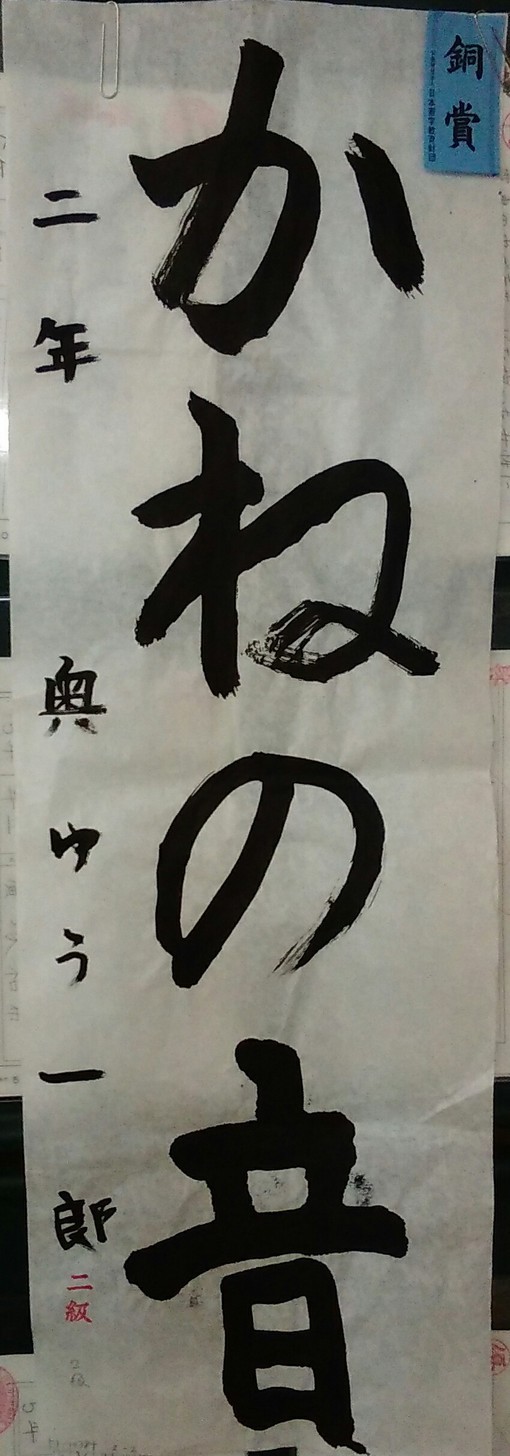 銅賞
日本習字教育財団
かねの音
二年 奥ゆう一郎
二級
2級